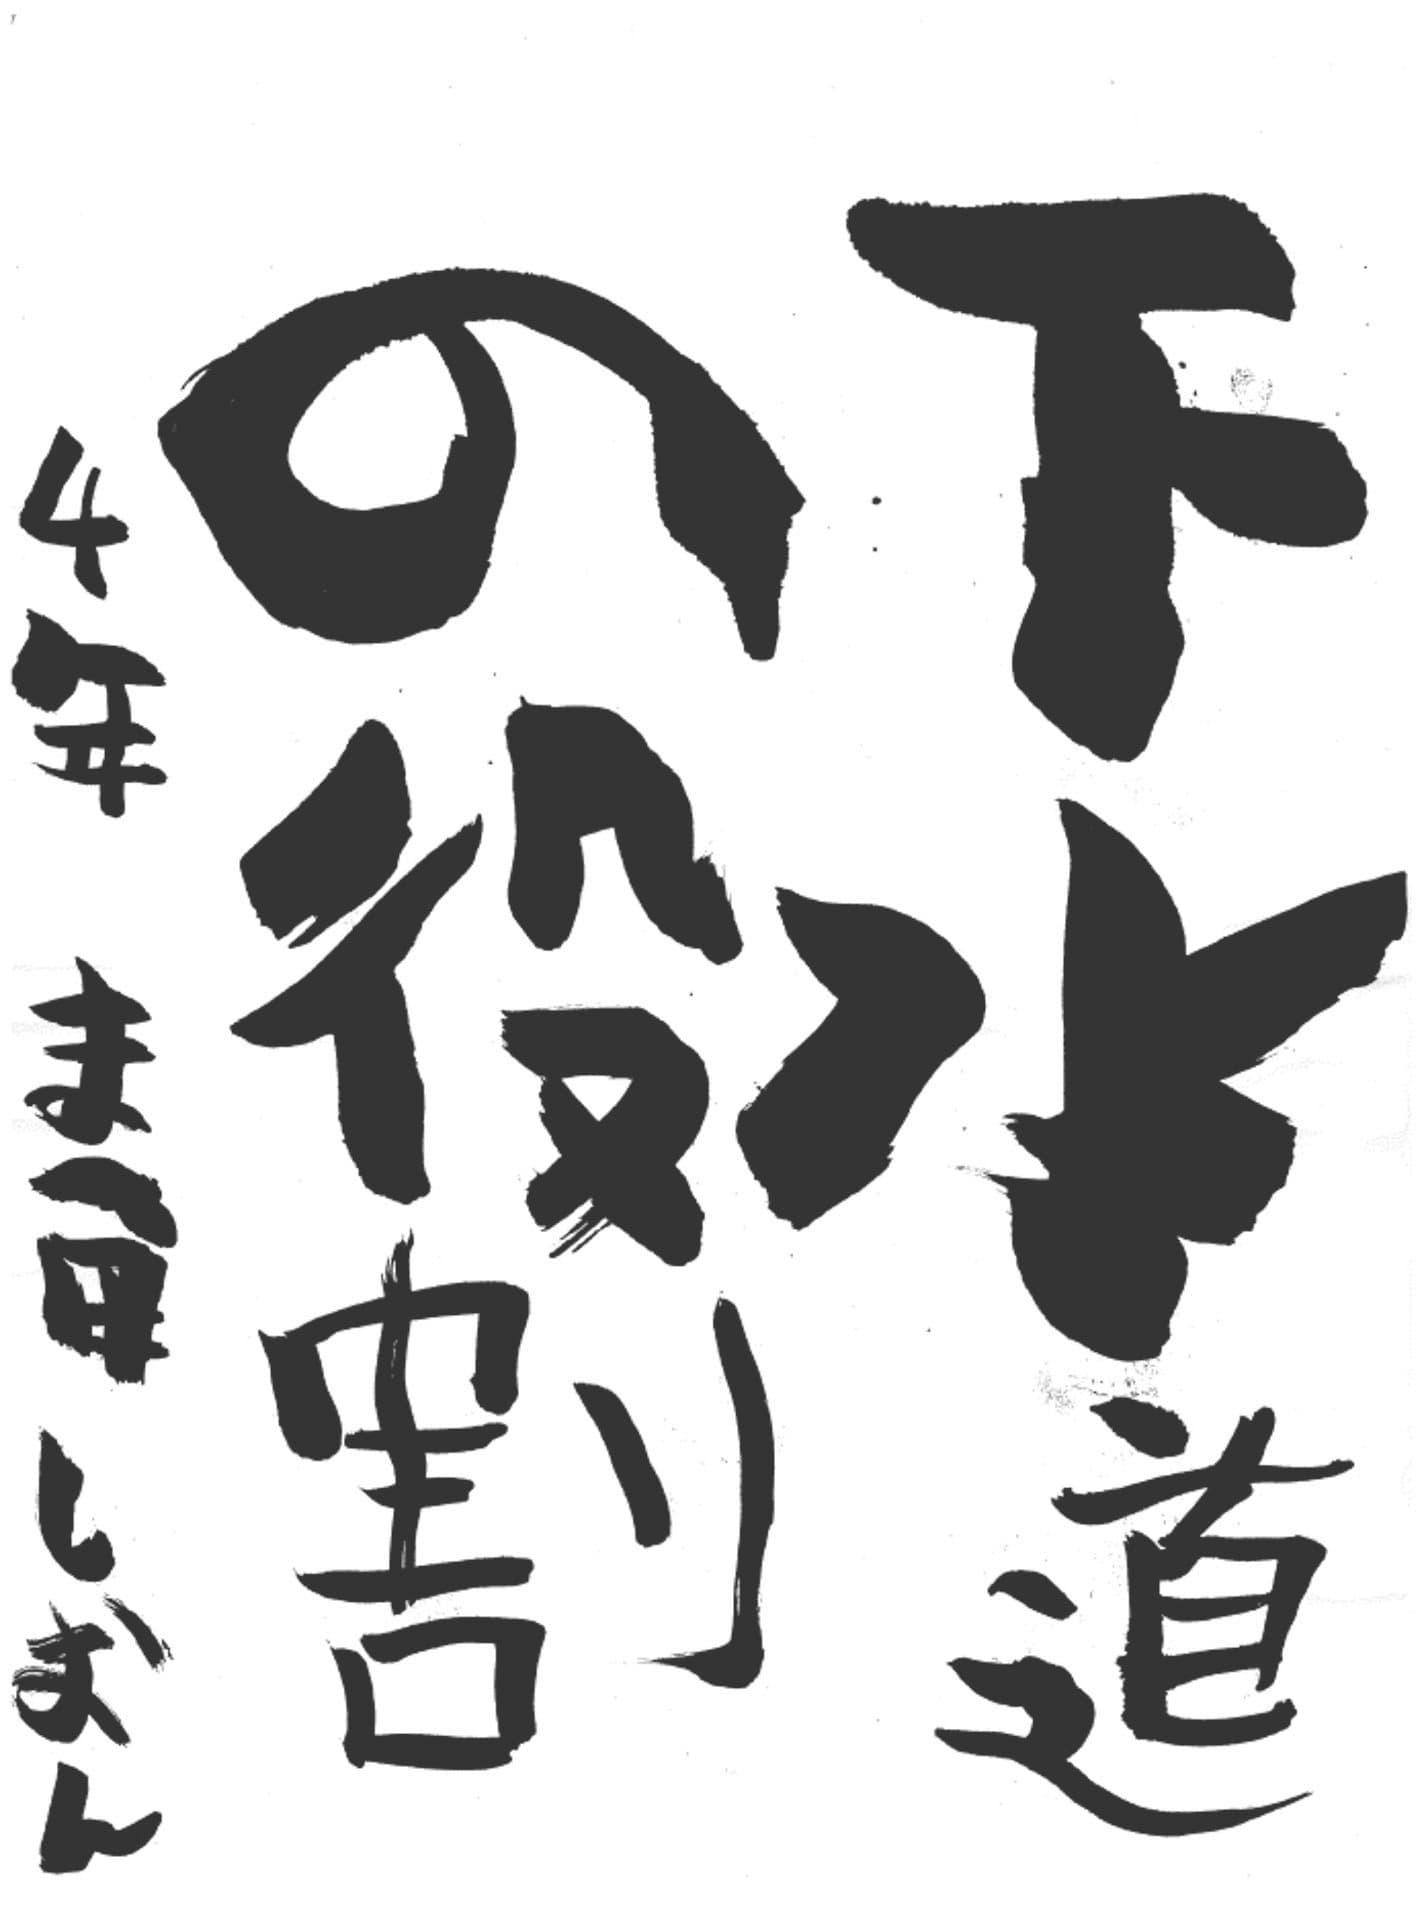 下水道
の役割
4年 ま雨 しおん